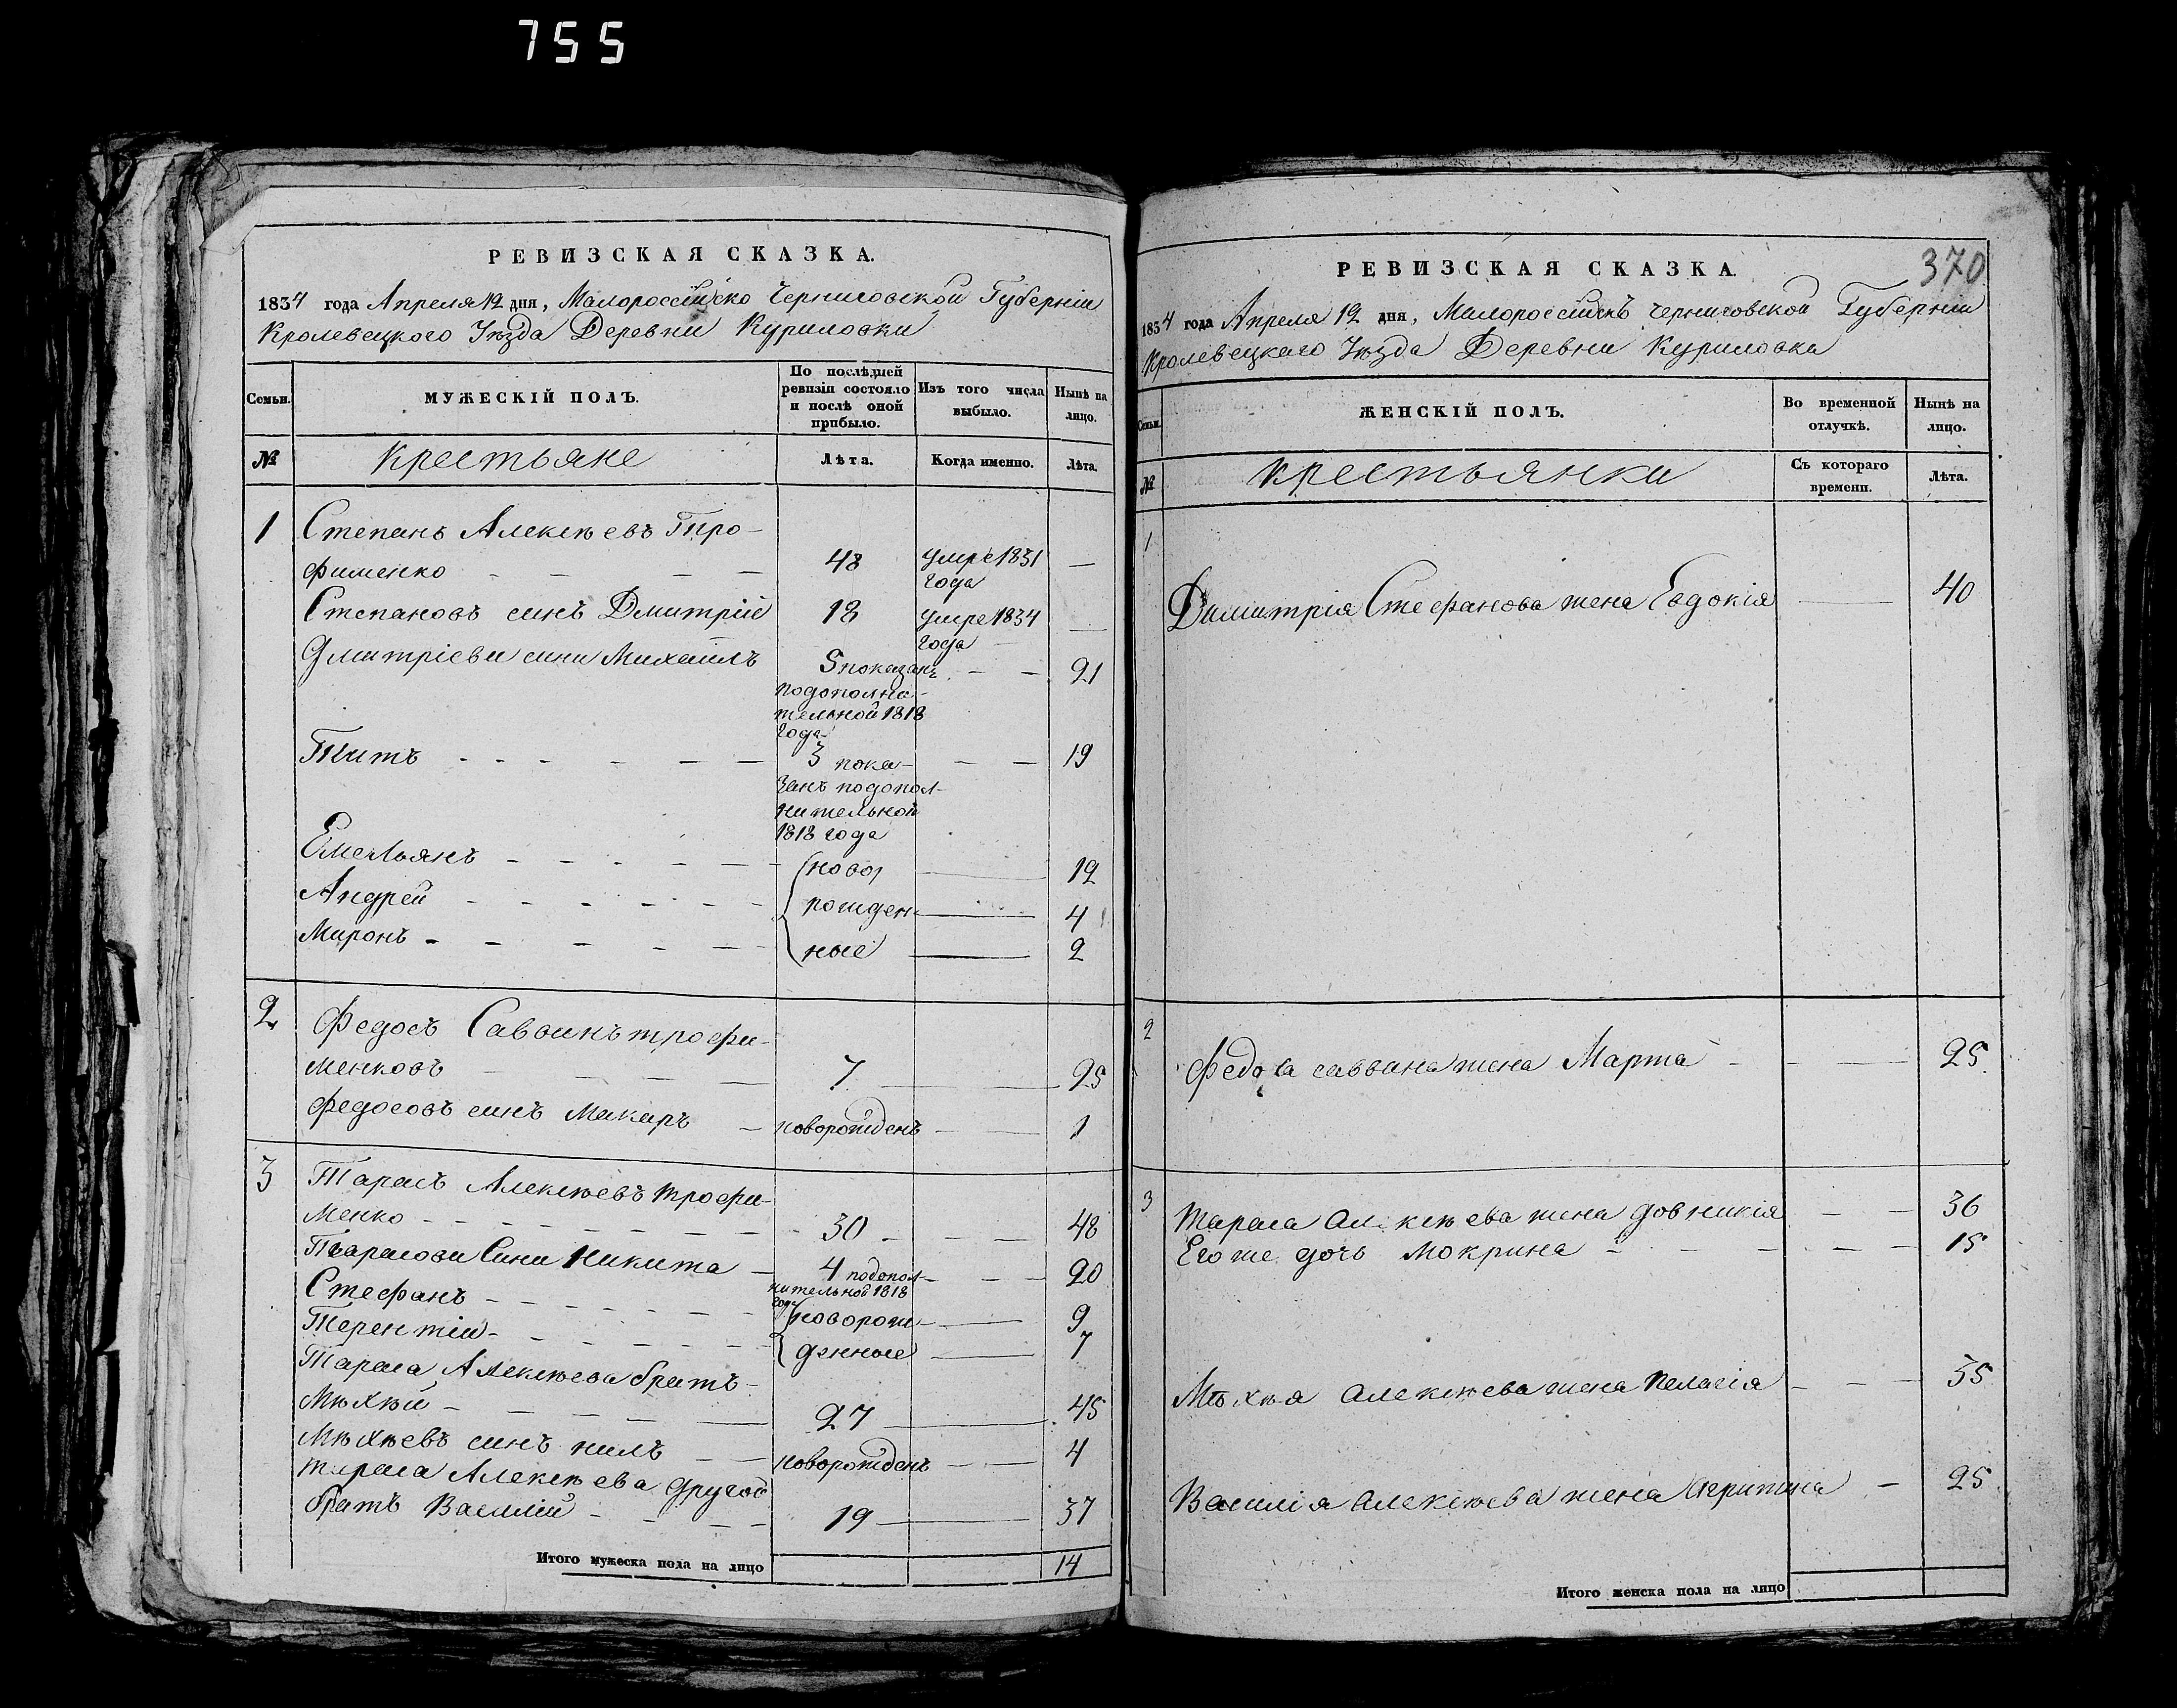 755
РЕВИЗСКАЯ СКАЗКА.
1834 года Апреля 12 дня, Малороссійско Черниговской Губерніи
Кролевецкого Уѣзда Деревни Куриловки
Семьи.
МУЖЕСКІЙ ПОЛЪ.
По послѣдней ревизіи состояло и послѣ оной прибыло.
Изъ того числа выбыло.
Нынѣ на лицо.
№
Крестьяне
Лѣта.
Когда именно.
Лѣта.
1 Степанъ Алексѣевъ Тро-
фименко — — — — 48 умре 1831 года —
Степановъ синъ Дмитрій 18 умре 1834 года —
Дмитріеви сини Михаилъ 5 показанъ — — 21
подополни-
тельной 1818
года
Титъ - - - — — — 3 пока- — — 19
занъ подопол-
нительной
1818 года
Емельянъ - - - - — — (ново, — 12
Андрей - - - - - - рожден- — 4
Миронъ - - - - — ные — 2
2 Федосъ Саввинъ трофи-
менковъ — — — — 7 — — 25
Федосовъ синъ Макаръ — новорожденъ — — 1
3 Тарасъ Алексѣевъ трофи-
менко - - - - — — — 30 - — — 48
Тарасови Сини Никита — 4 подопол- — — 20
нительной 1818
года
Стефанъ - - - - - - (новорож- — 9
Терентій - - - - - - денные — 7
Тараса Алексѣева братъ-
Мѣхѣй - — — — — 27 — — 45
Мѣхѣевъ синъ нилъ — — новорожденъ — — 4
тараса Алексѣева другой
братъ Василій - - — — 19 — — 37
Итого мужеска пола на лицо 14
370
РЕВИЗСКАЯ СКАЗКА.
1834 года Апреля 12 дня, Малороссійскъ черниговской Губерніи
Кролевецкаго Уѣзда Деревни Куриловки
Семьи.
ЖЕНСКІЙ ПОЛЪ.
Во временной отлучкѣ.
Нынѣ на лицо.
№
крестьянки
Съ котораго времени.
Лѣта.
1
Димитрія Стефанова жена Евдокія — 40
2
Федоса саввина жена Марта - — — 25
3 Тараса Алексѣева жена довникія — — 36
Его же дочь Мокрина - - — — — 15
Мѣхѣя Алексѣева жена Пелагія - — — 35
Василія Алексѣева жена Агрипина — 25
Итого женска пола на лицо